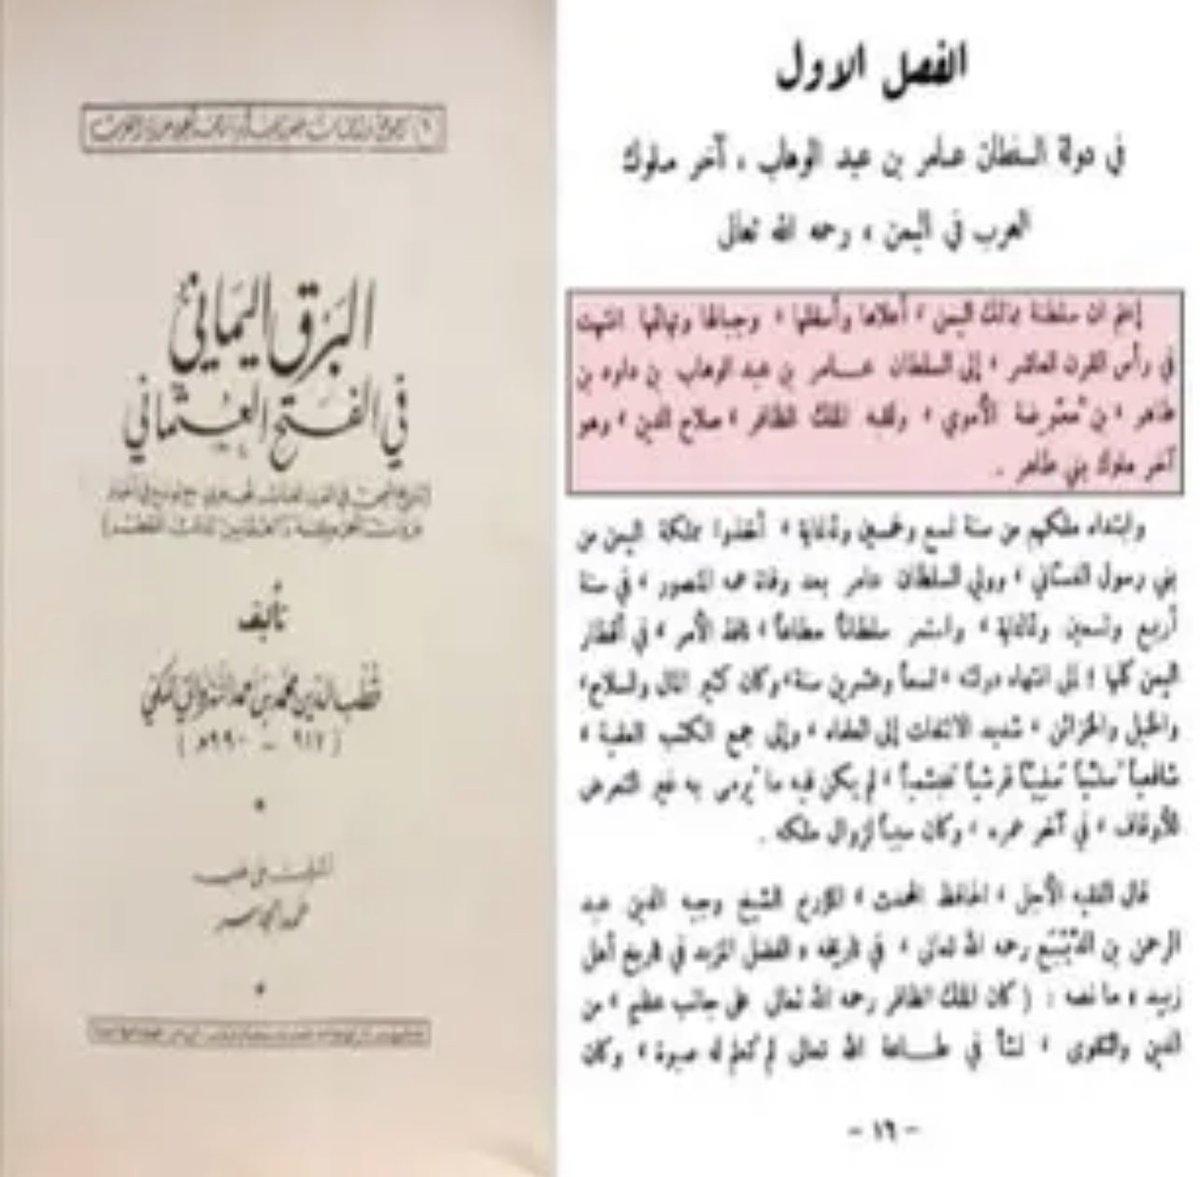 البَرق اليَماني
في الفتح العُثماني
تأليف
قطب الدين محمد بن أحمد النهروالي المكي
(٩١٧ - ٩٩٠هـ)
أشرف على طبعه
حمد الجاسر
الفصل الاول
في دولة السلطان عامر بن عبد الوهاب ، آخر ملوك
العرب في اليمن ، رحمه الله تعالى
إعلم ان سلطنة ممالك اليمن ، أعلاها وأسفلها ، وجبالها وتهائمها انتهت
في رأس القرن العاشر ، إلى السلطان عامر بن عبد الوهاب بن داود بن
طاهر ، بن مُعَوَّضة الأموي ، ولقبه الملك الظافر ، صلاح الدين ، وهو
آخر ملوك بني طاهر .
وابتداء ملكهم من سنة تسع وخمسين وثمانماية ، أخذوا مملكة اليمن من
بني رسول الغسّاني ، وولي السلطان عامر بعد وفاة عمه المنصور ، في سنة
أربع وتسعين وثمانماية ، واستمر سلطاناً مطاعاً ، نافذ الأمر ، في أقطار
اليمن كلها ؛ إلى انتهاء دولته ، تسعاً وعشرين سنة، وكان كثير المال والسلاح،
والخيل والخزائن ، شديد الالتفات إلى العلماء ، وإلى جمع الكتب العلمية ،
شافعياً ، لم يكن فيه ما يُرمى به غير التعرض
للأوقاف ، في آخر عمره ، وكان سبباً لزوال ملكه .
قال الفقيه الأجل ، الحافظ المحدث ، المؤرخ الشيخ وجيه الدين عبد
الرحمن بن الدَّيْبَع رحمه الله تعالى ، في تاريخه « الفضل المزيد في تاريخ أهل
زبيد » ما نصه : ( كان الملك الظافر رحمه الله تعالى على جانب عظيم ، من
الدين والتقوى ، نشأ في طاعة الله تعالى لم تُعلم له صبوة ، وكان
- ١٦ -